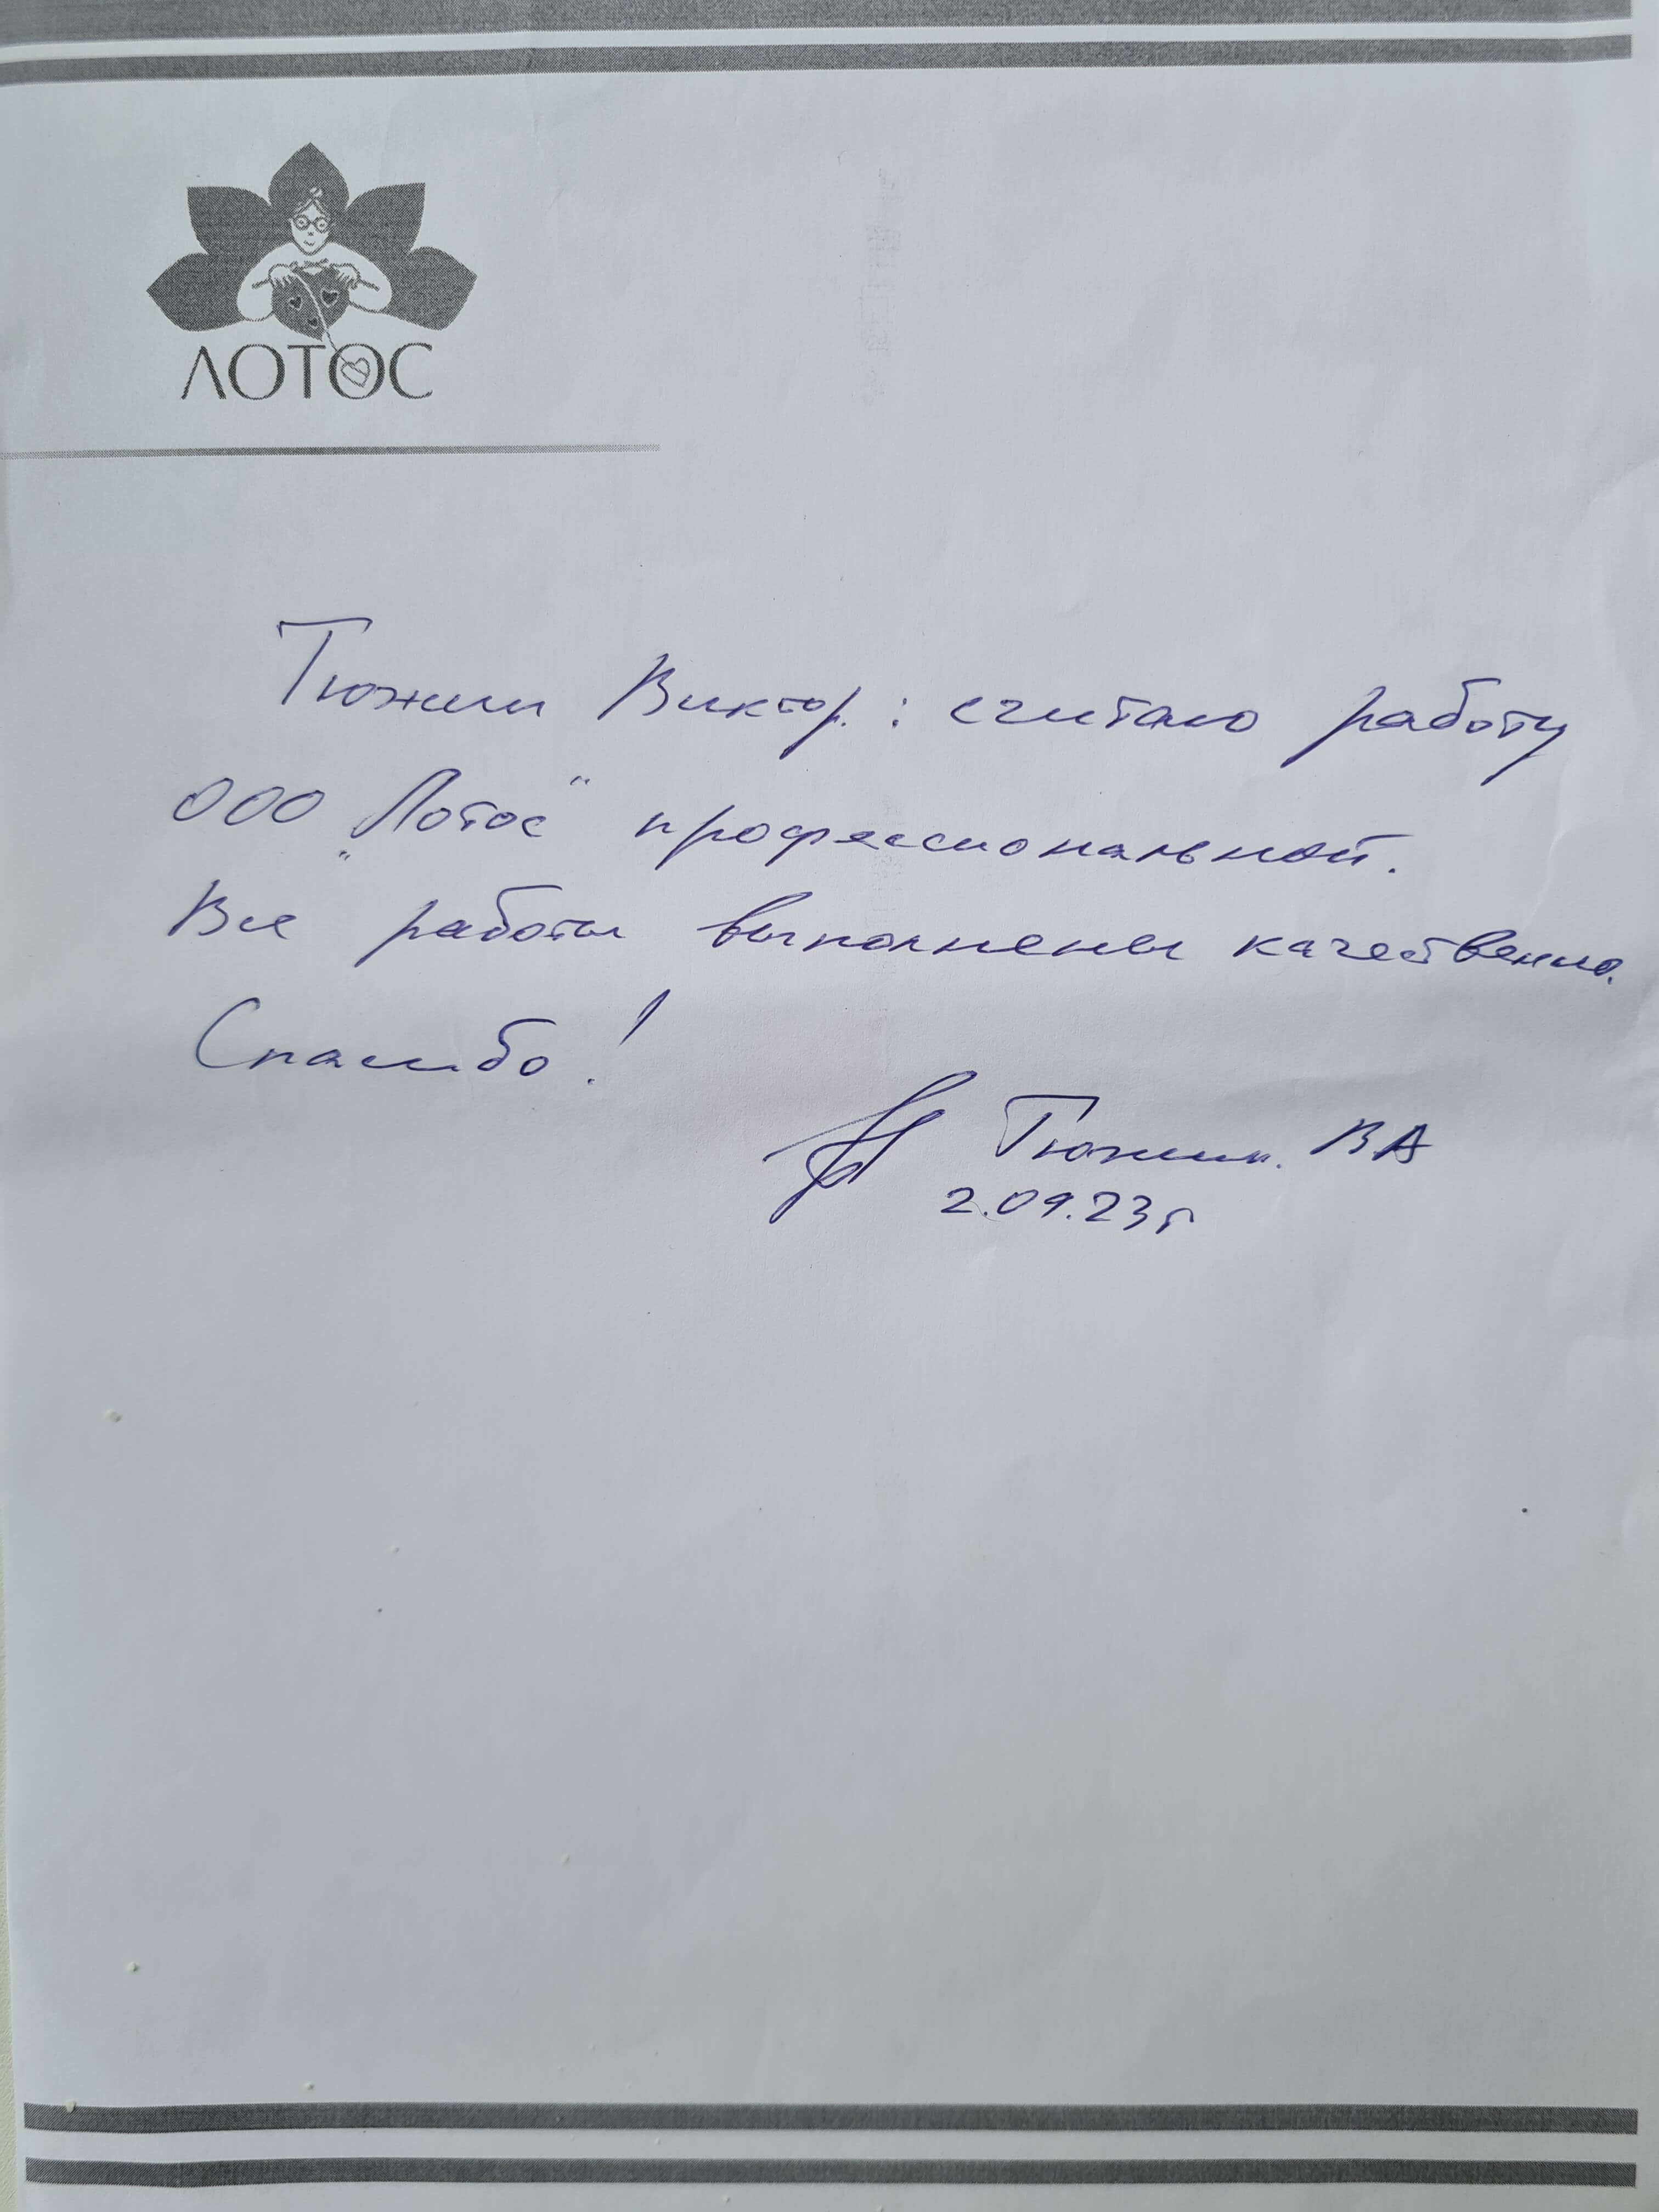 ЛОТОС
Тюжин Виктор. : считаю работу
ООО „Лотос" профессиональной.
Все работы выполнены качественно.
Спасибо!
Тюжин. ВА
2.09.23г